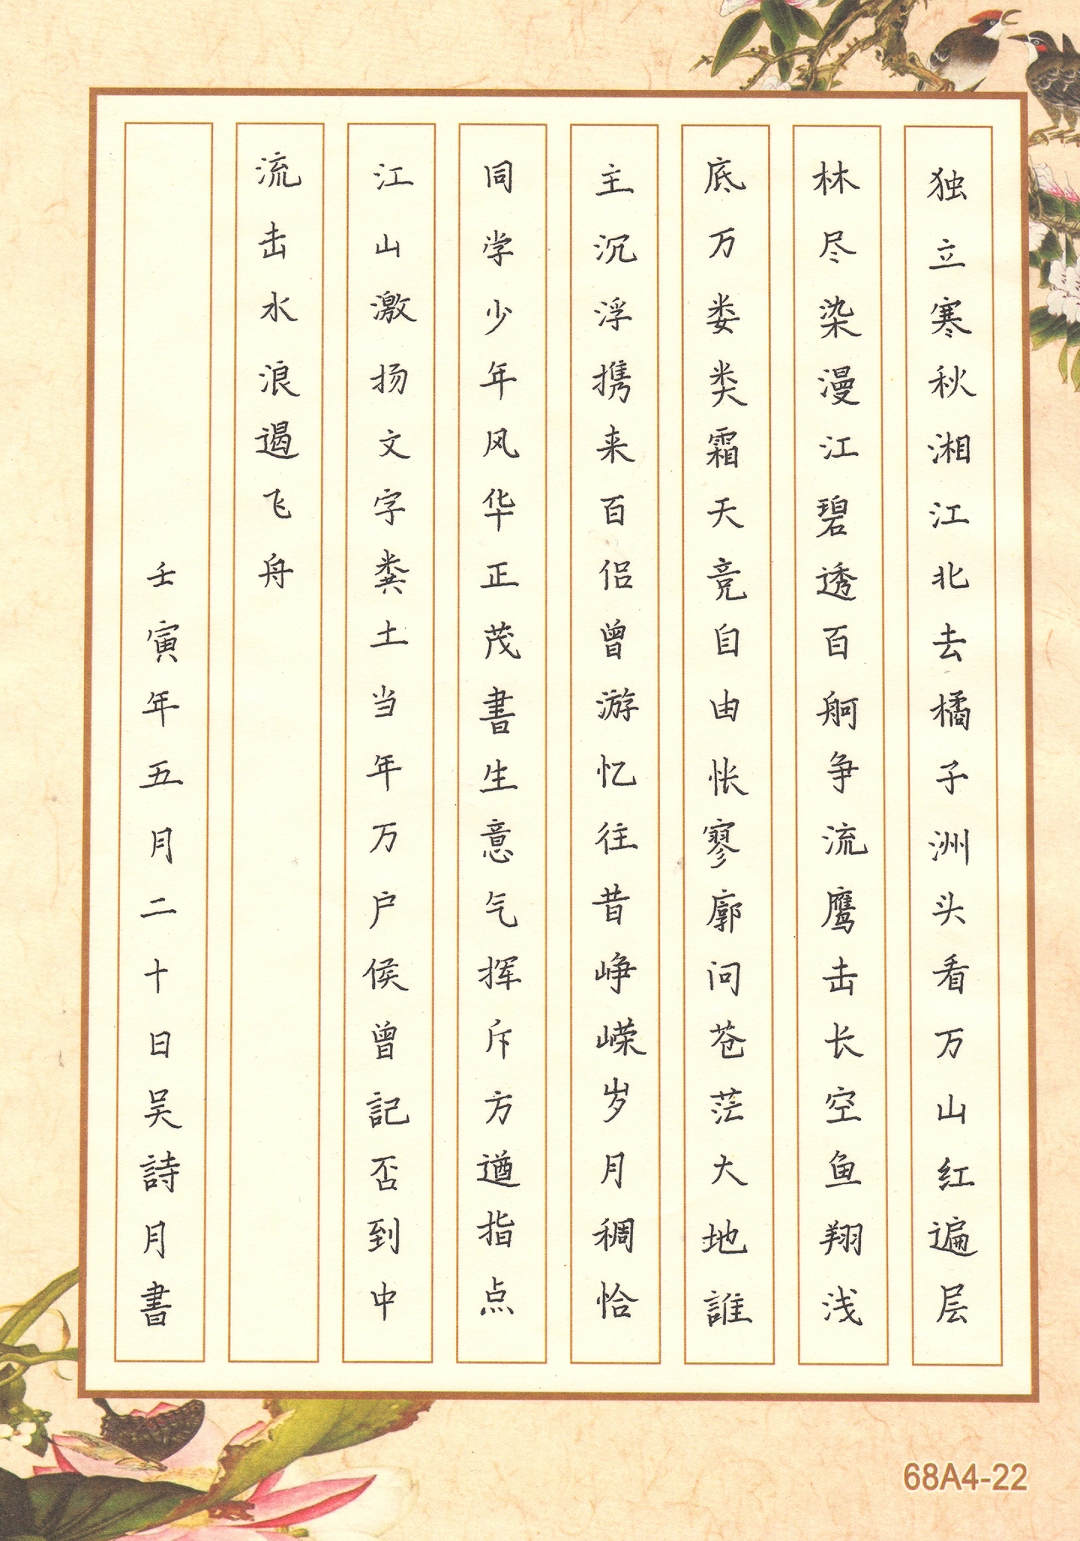 独立寒秋湘江北去橘子洲头看万山红遍层
林尽染漫江碧透百舸争流鹰击长空鱼翔浅
底万娄类霜天竞自由怅寥廓问苍茫大地誰
主沉浮携来百侣曾游忆往昔峥嵘岁月稠恰
同学少年风华正茂書生意气挥斥方遒指点
江山激扬文字粪土当年万户侯曾記否到中
流击水浪遏飞舟
壬寅年五月二十日吴詩月書
68A4-22